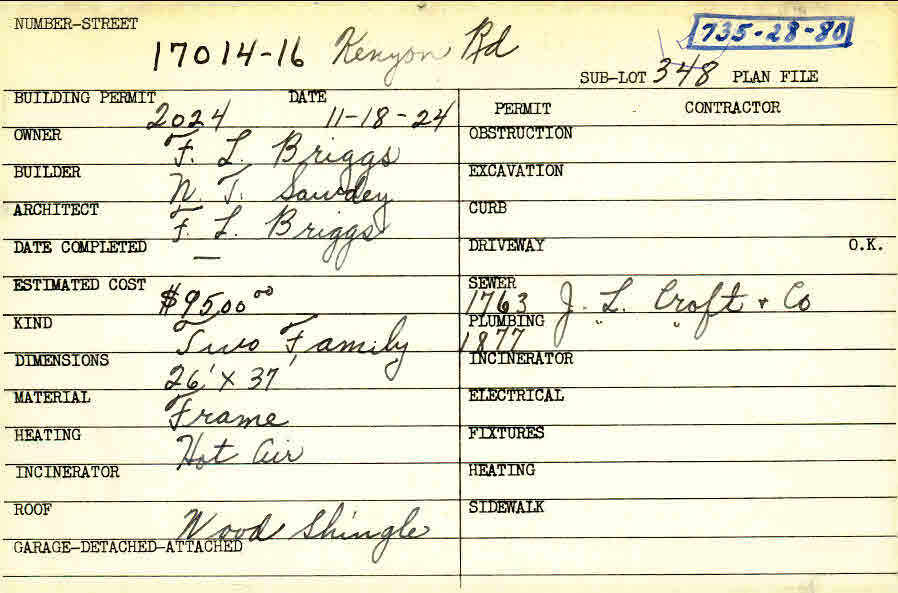 NUMBER-STREET
735-28-80
17014-16 Kenyon Rd
SUB-LOT 348 PLAN FILE
BUILDING PERMIT 2024 DATE 11-18-24
OWNER F. L. Briggs
BUILDER N. T. Sawdey
ARCHITECT F. L. Briggs
DATE COMPLETED —
ESTIMATED COST $9500 00
KIND Two Family
DIMENSIONS 26' X 37'
MATERIAL Frame
HEATING Hot Air
INCINERATOR
ROOF Wood Shingle
GARAGE-DETACHED-ATTACHED
PERMIT CONTRACTOR
OBSTRUCTION
EXCAVATION
CURB
DRIVEWAY O.K.
SEWER 1763 J. L. Croft + Co
PLUMBING 1877 " "
INCINERATOR
ELECTRICAL
FIXTURES
HEATING
SIDEWALK